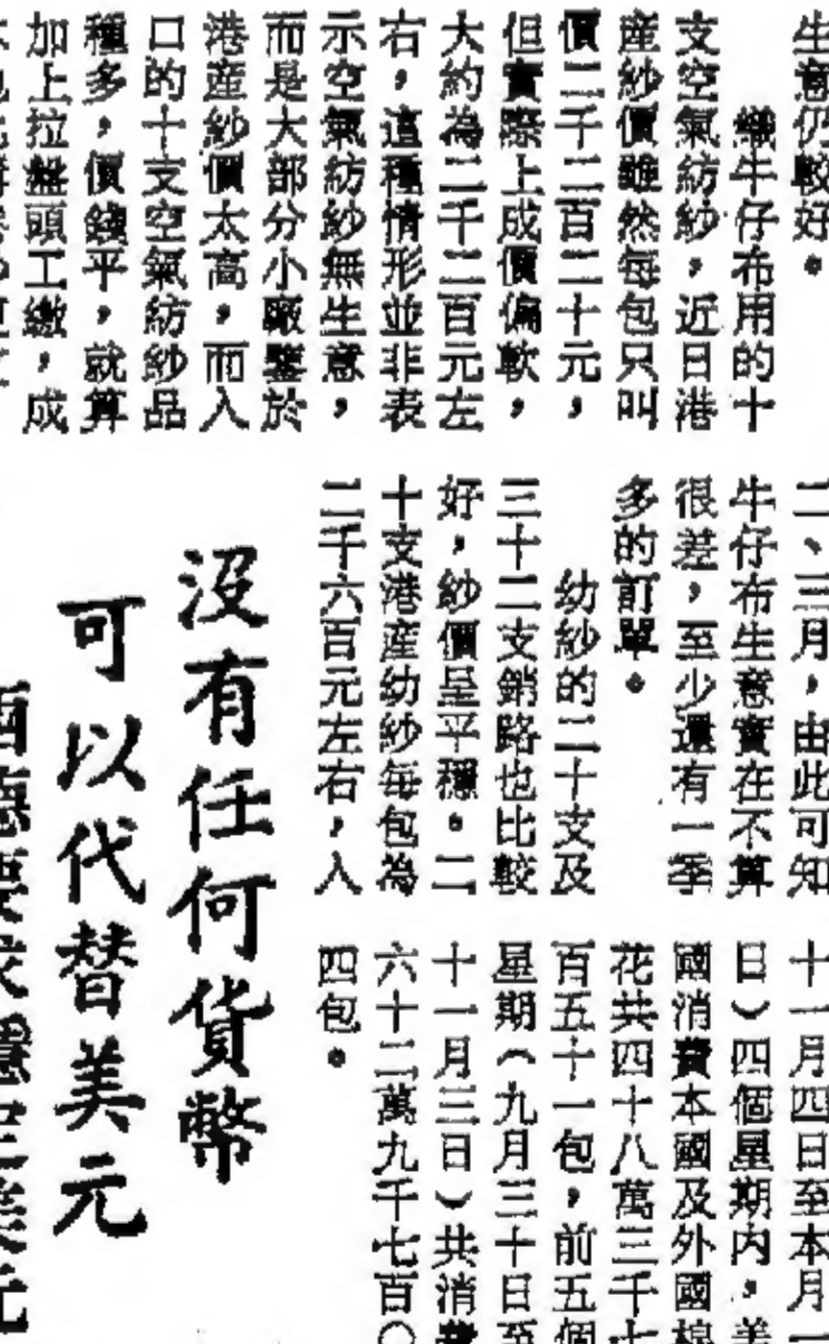 生意仍較好。
織牛仔布用的十
支空氣紡紗，近日港
産紗價雖然每包只叫
價二千二百二十元，
但實際上成價偏軟，
大約為二千二百元左
右，這種情形並非表
示空氣紡紗無生意，
而是大部分小廠鑒於
港産紗價太高，而入
口的十支空氣紡紗品
種多，價錢平，就算
加上拉盤頭工繳，成
二、三月，由此可知
牛仔布生意實在不算
很差，至少還有一季
多的訂單。
幼紗的二十支及
三十二支銷路也比較
好，紗價呈平穩。二
十支港産幼紗每包為
二千六百元左右，入
十一月四日至本月一
日）四個星期內，美
國消費本國及外國棉
花共四十八萬三千七
百五十一包，前五個
星期（九月三十日至
十一月三日）共消費
六十二萬九千七百〇
四包。
沒有任何貨幣
可以代替美元
西德要求穩定美元